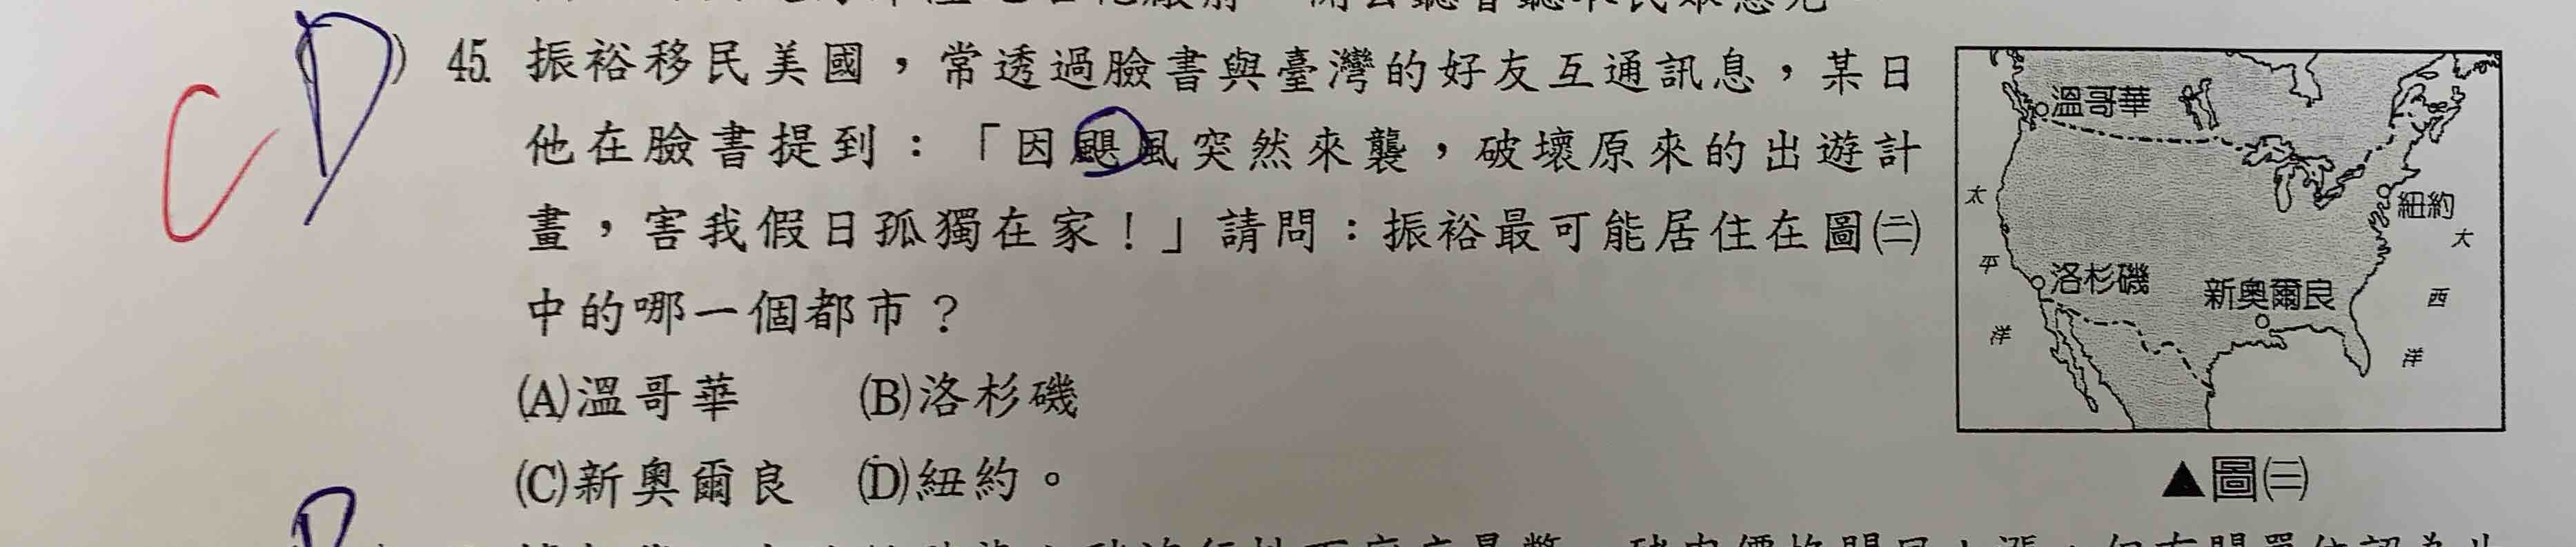 C
D
) 45. 振裕移民美國，常透過臉書與臺灣的好友互通訊息，某日
他在臉書提到：「因颶風突然來襲，破壞原來的出遊計
畫，害我假日孤獨在家！」請問：振裕最可能居住在圖㈢
中的哪一個都市？
(A)溫哥華 (B)洛杉磯
(C)新奧爾良 (D)紐約。
溫哥華
紐約
洛杉磯
新奧爾良
太平洋
大西洋
▲圖㈢